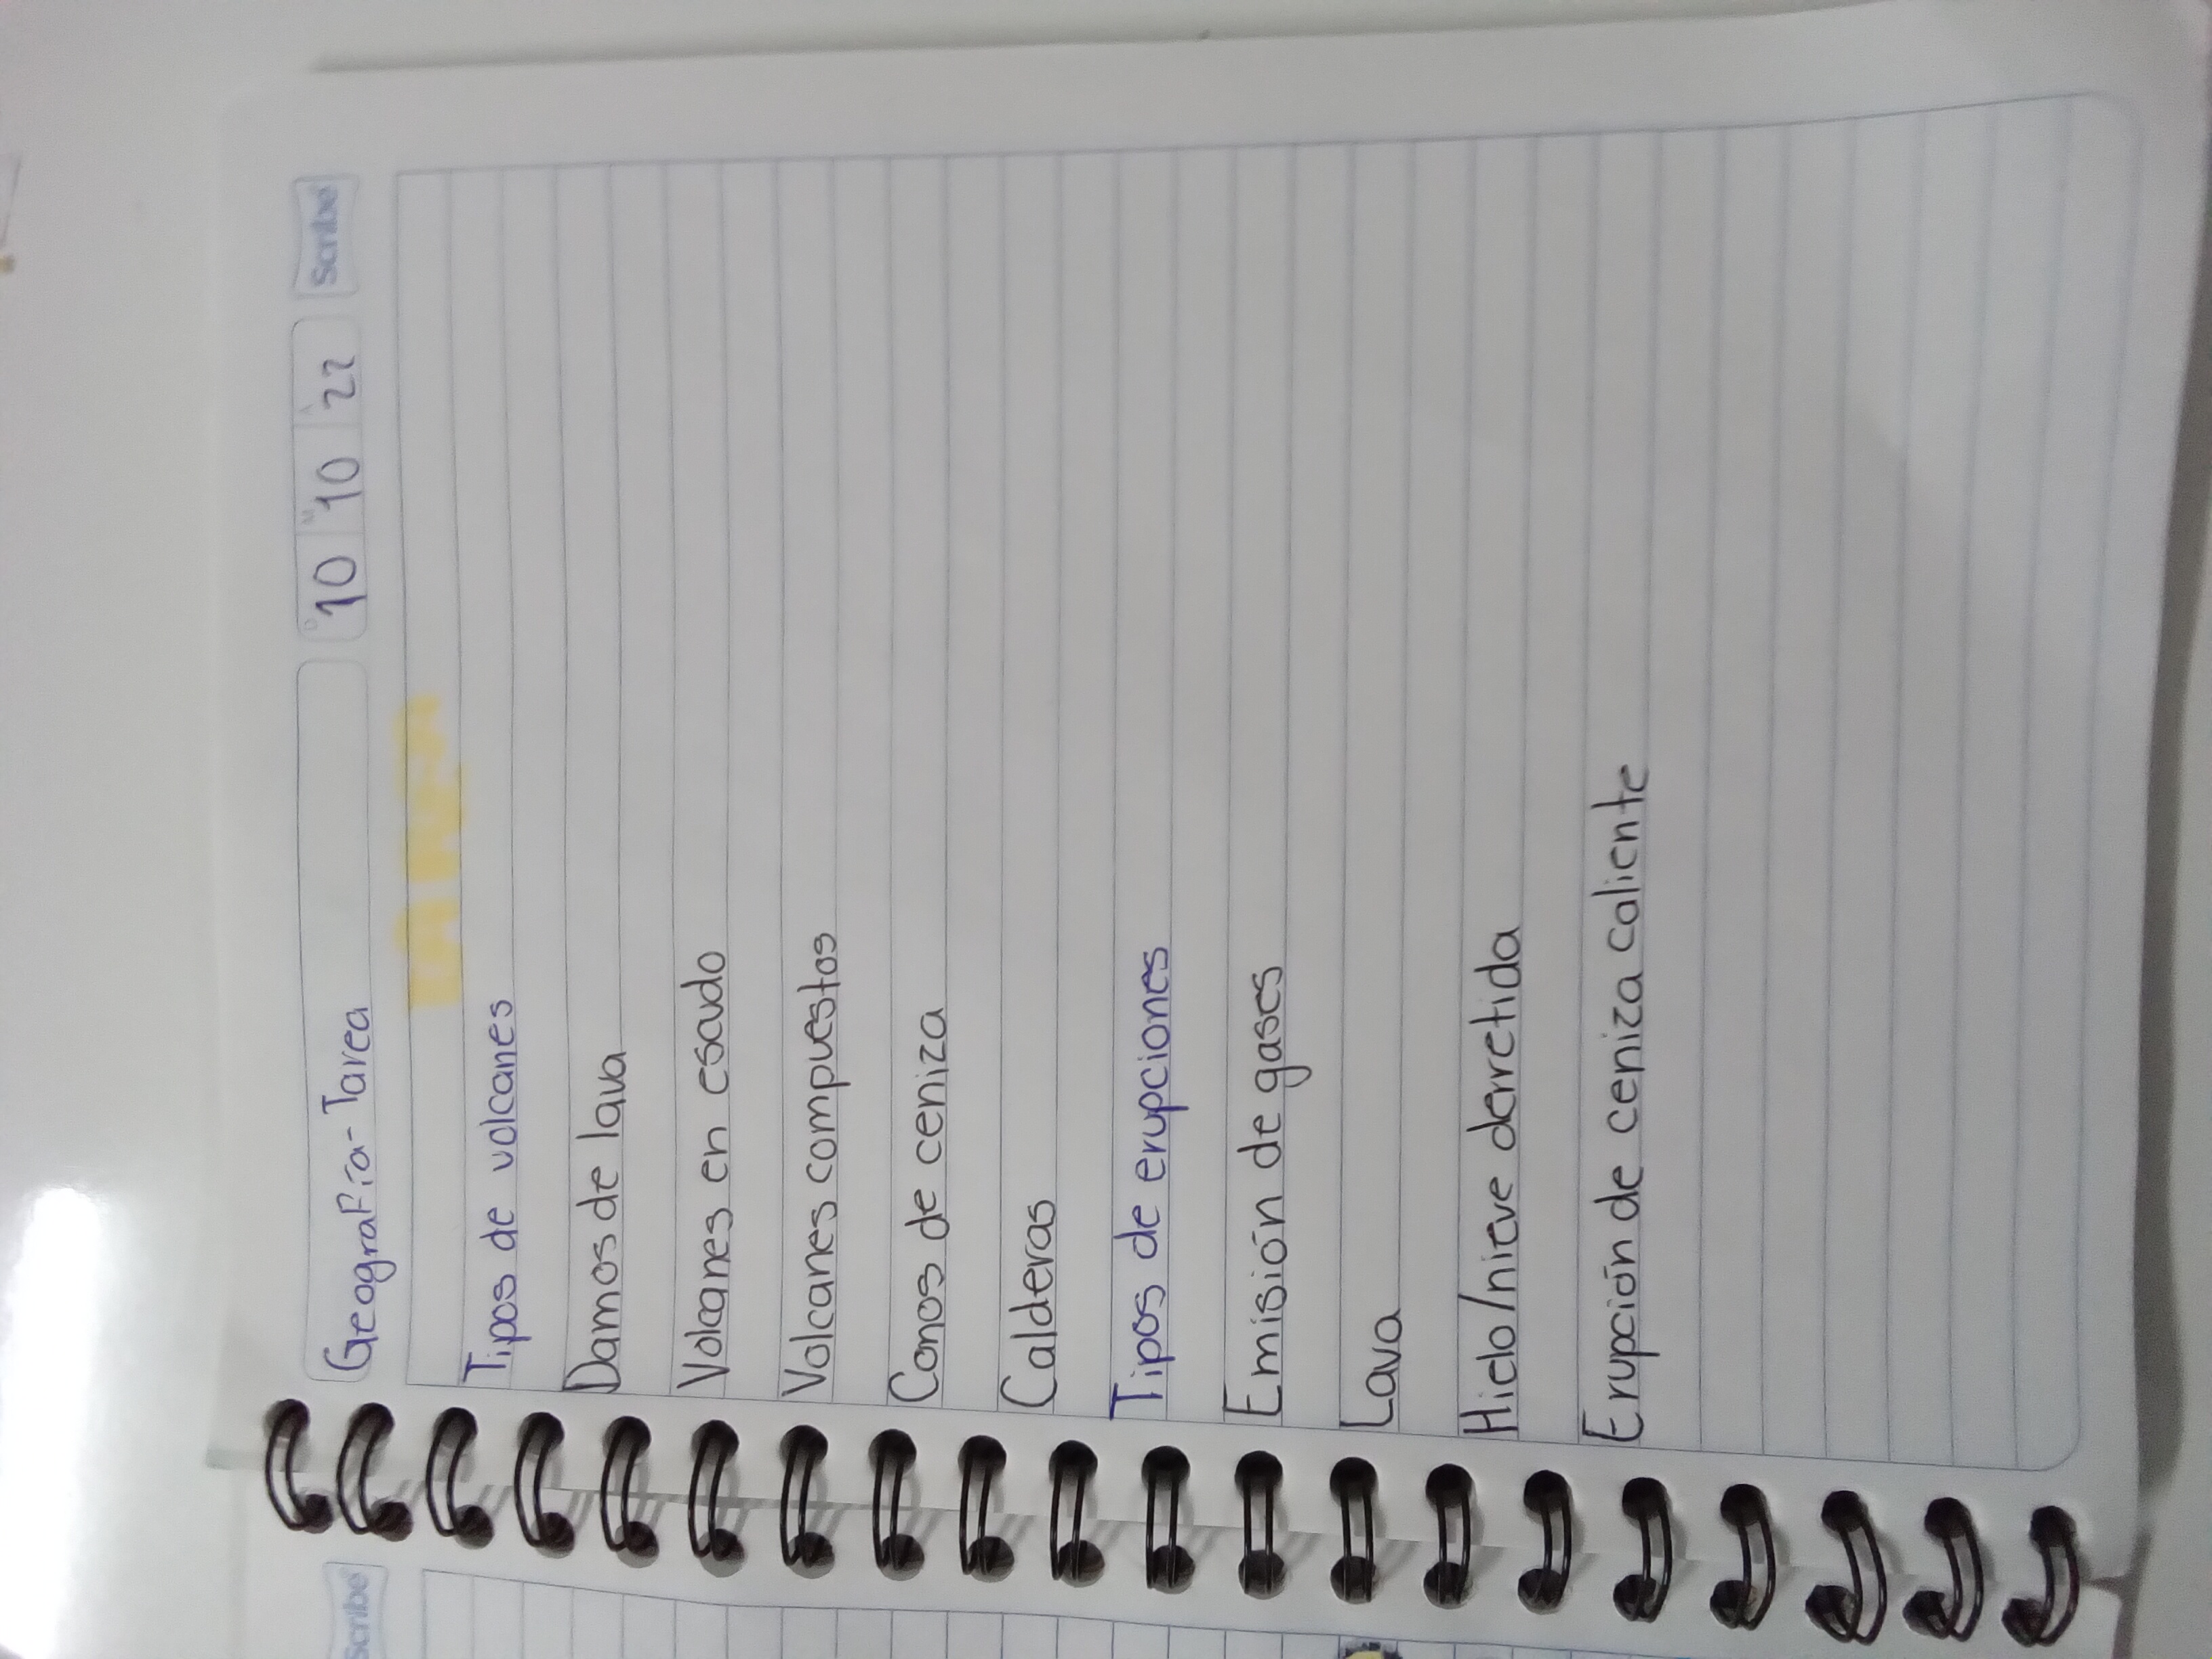 Geografía-Tarea
D 10 M 10 A 22 Scribe
TAREA
Tipos de volcanes
Damos de lava
Volcanes en escudo
Volcanes compuestos
Conos de ceniza
Calderas
Tipos de erupciones
Emisión de gases
Lava
Hielo/nieve derretida
Erupción de ceniza caliente
Scribe